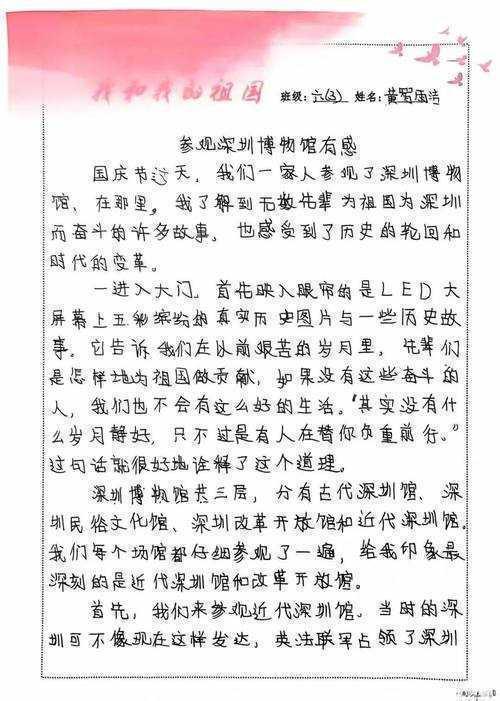 我和我的祖国 班级：六(3) 姓名：黄雪涵洁
参观深圳博物馆有感
国庆节这天，我们一家人参观了深圳博物
馆、在那里。我了解到无数先辈为祖国为深圳
而奋斗的许多故事，也感受到了历史的轮回和
时代的变革。
一进入大门，首先映入眼帘的是LED大
屏幕上五彩缤纷的真实历史图片与一些历史故
事。它告诉我们在以前艰苦的岁月里，先辈们
是怎样地为祖国做贡献，如果没有这些奋斗的
人，我们也不会有这么好的生活。"其实没有什
么岁月静好，只不过是有人在替你负重前行。"
这句话就很好地诠释了这个道理。
深圳博物馆共三层，分有古代深圳馆、深
圳民俗文化馆、深圳改革开放馆和近代深圳馆。
我们每个场馆都仔细参观了一遍，给我印象最
深刻的是近代深圳馆和改革开放馆。
首先，我们来参观近代深圳馆。当时的深
圳可不像现在这样发达，英法联军占领了深圳